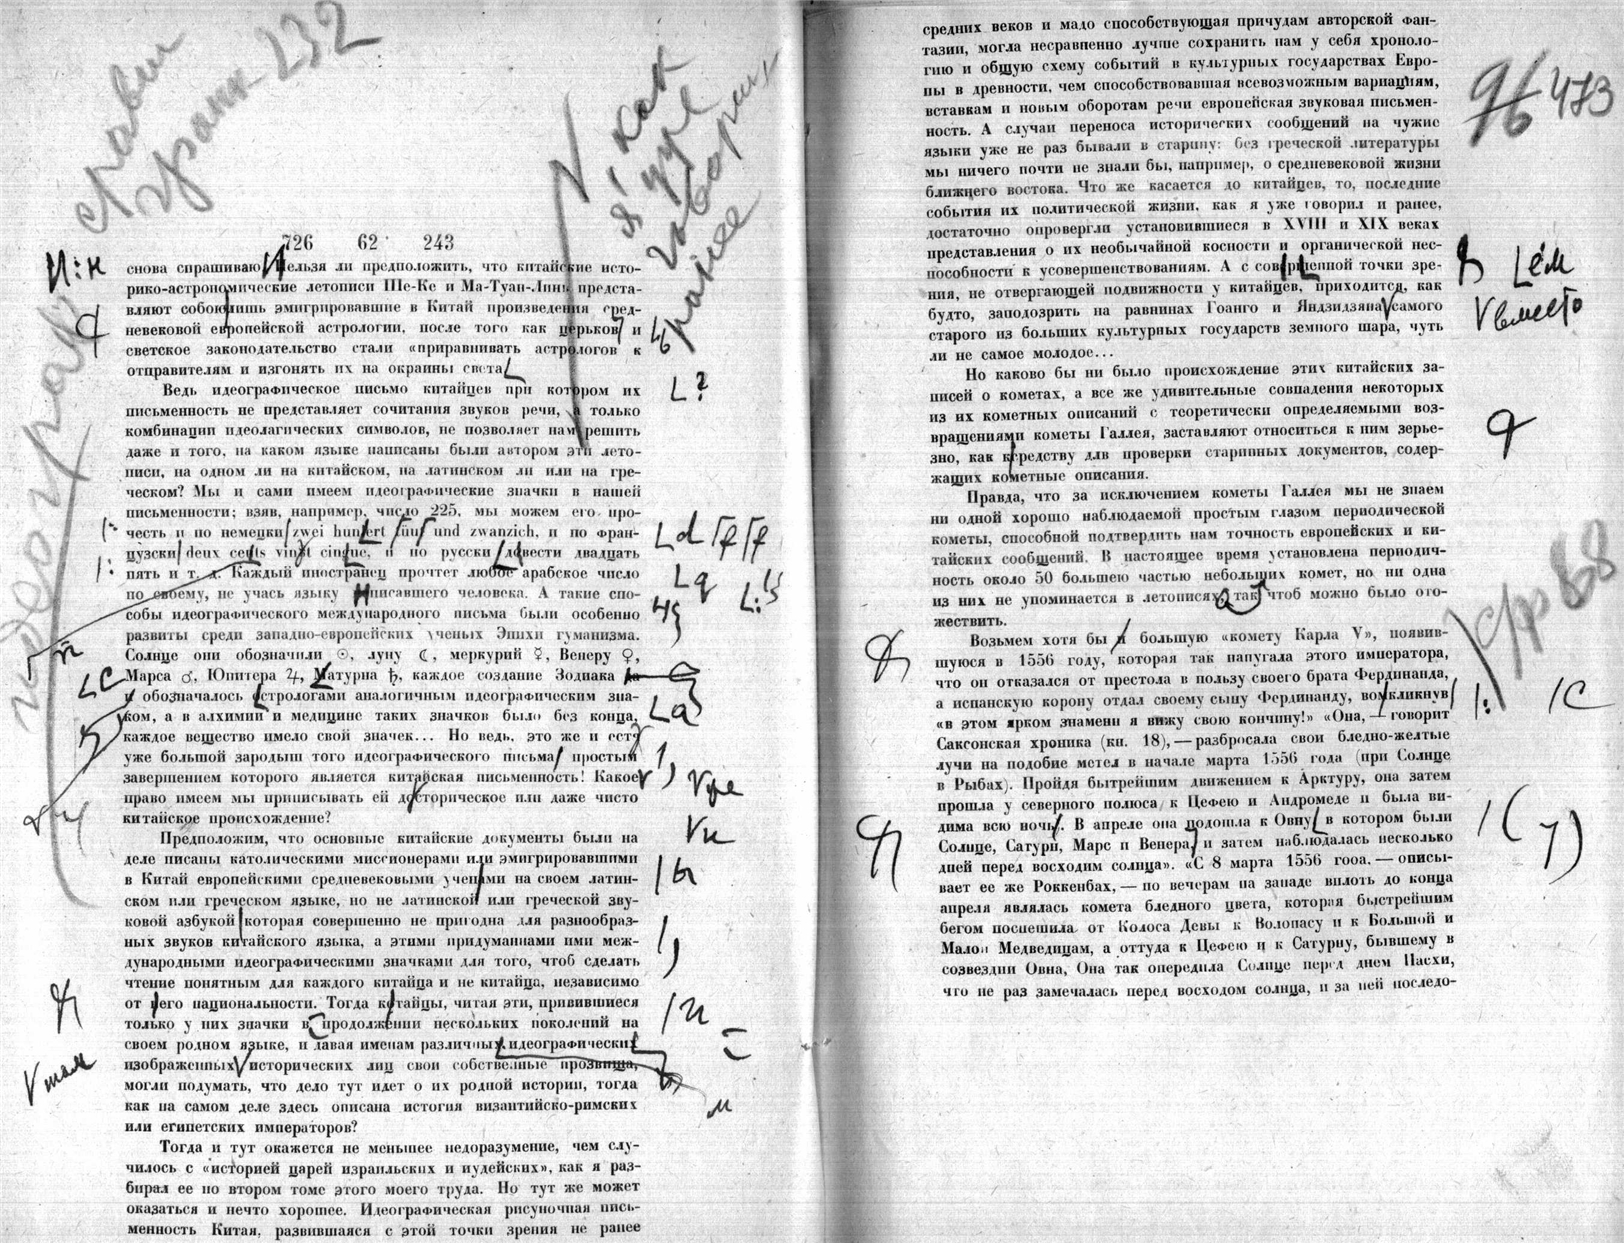 сравни
гранк-232
я, как
уже
говорил,
ранее
726 62 243
снова спрашиваю Нельзя ли предположить, что китайские исто-
рико-астрономические летописи Ше-Ке и Ма-Туан-Линь предста-
вляют собою лишь эмигрировавшие в Китай произведения сред-
невековой европейской астрологии, после того как церковь и
светское законодательство стали «приравнивать астрологов к
отправителям и изгонять их на окраины света
Ведь идеографическое письмо китайцев при котором их
письменность не представляет сочитания звуков речи, а только
комбинации идеолагических символов, не позволяет нам решить
даже и того, на каком языке написаны были автором эти лето-
писи, на одном ли на китайском, на латинском ли или на гре-
ческом? Мы и сами имеем идеографические значки в нашей
письменности; взяв, например, число 225, мы можем его про-
честь и по немецки zwei hundert fünf und zwanzich, и по фран-
цузски deux cents vingt cinque, и по русски двести двадцать
пять и т. д. Каждый иностранец прочтет любое арабское число
по своему, не учась языку написавшего человека. А такие спо-
собы идеографического международного письма были особенно
развиты среди западно-европейских ученых Эпохи гуманизма.
Солнце они обозначили ☉, луну ☾, меркурий ☿, Венеру ♀,
Марса ♂, Юпитера ♃, Матурна ♄, каждое создание Зодиака да
и обозначалось астрологами аналогичным идеографическим зна-
ком, а в алхимии и медицине таких значков было без конца,
каждое вещество имело свой значек... Но ведь, это же и есть
уже большой зародыш того идеографического письма простым
завершением которого является китайская письменность! Какое
право имеем мы приписывать ей доисторическое или даже чисто
китайское происхождение?
Предположим, что основные китайские документы были на
деле писаны католическими миссионерами или эмигрировавшими
в Китай европейскими средневековыми учеными на своем латин-
ском или греческом языке, но не латинской или греческой зву-
ковой азбукой которая совершенно не пригодна для разнообраз-
ных звуков китайского языка, а этими придуманнами ими меж-
дународными идеографическими значками для того, чтоб сделать
чтение понятным для каждого китайца и не китайца, независимо
от него национальности. Тогда китайцы, читая эти, привившиеся
только у них значки в продолжении нескольких поколений на
своем родном языке, и давая именам различных идеографически
изображенных исторических лиц свои собственные прозвища,
могли подумать, что дело тут идет о их родной истории, тогда
как на самом деле здесь описана истогия византийско-римских
или египетских императоров?
Тогда и тут окажется не меньшее недоразумение, чем слу-
чилось с «историей царей израильских и иудейских», как я раз-
бирал ее во втором томе этого моего труда. Но тут же может
оказаться и нечто хорошее. Идеографическая рисуночная пись-
менность Китая, развившаяся с этой точки зрения не ранее
средних веков и мадо способствующая причудам авторской фан-
тазии, могла несравненно лучше сохранить нам у себя хроноло-
гию и общую схему событий в культурных государствах Евро-
пы в древности, чем способствовавшая всевозможным вариациям,
вставкам и новым оборотам речи европейская звуковая письмен-
ность. А случаи переноса исторических сообщений на чужие
языки уже не раз бывали в старину: без греческой литературы
мы ничего почти не знали бы, например, о средневековой жизни
ближнего востока. Что же касается до китайцев, то, последние
события их политической жизни, как я уже говорил и ранее,
достаточно опровергли установившиеся в XVIII и XIX веках
представления о их необычайной косности и органической нес-
пособности к усовершенствованиям. А с совершенной точки зре-
ния, не отвергающей подвижности у китайцев, приходится, как
будто, заподозрить на равнинах Гоанго и Яндзидзяна самого
старого из больших культурных государств земного шара, чуть
ли не самое молодое...
Но каково бы ни было происхождение этих китайских за-
писей о кометах, а все же удивительные совпадения некоторых
из их кометных описаний с теоретически определяемыми воз-
вращениями кометы Галлея, заставляют относиться к ним зерье-
зно, как к средству для проверки старинных документов, содер-
жащих кометные описания.
Правда, что за исключением кометы Галлея мы не знаем
ни одной хорошо наблюдаемой простым глазом периодической
кометы, способной подтвердить нам точность европейских и ки-
тайских сообщений. В настоящее время установлена периодич-
ность около 50 большею частью небольших комет, но ни одна
из них не упоминается в летописях, так чтоб можно было ото-
жествить.
Возьмем хотя бы и большую «комету Карла V», появив-
шуюся в 1556 году, которая так напугала этого императора,
что он отказался от престола в пользу своего брата Фердинанда,
а испанскую корону отдал своему сыну Фердинанду, воскликнув
«в этом ярком знамени я вижу свою кончину!» «Она, — говорит
Саксонская хроника (кн. 18), — разбросала свои бледно-желтые
лучи на подобие метел в начале марта 1556 года (при Солнце
в Рыбах). Пройдя бытрейшим движением к Арктуру, она затем
прошла у северного полюса к Цефею и Андромеде и была ви-
дима всю ночь. В апреле она подошла к Овну в котором были
Солнце, Сатурн, Марс и Венера и затем наблюдалась несколько
дней перед восходим солнца». «С 8 марта 1556 гооа, — описы-
вает ее же Роккенбах, — по вечерам на западе вплоть до конца
апреля являлась комета бледного цвета, которая быстрейшим
бегом поспешила от Колоса Девы к Волопасу и к Большой и
Малой Медведицам, а оттуда к Цефею и к Сатурну, бывшему в
созвездии Овна, Она так опередила Солнце перед днем Пасхи,
что не раз замечалась перед восходом солнца, и за ней последо-
96 473
ем
вместо